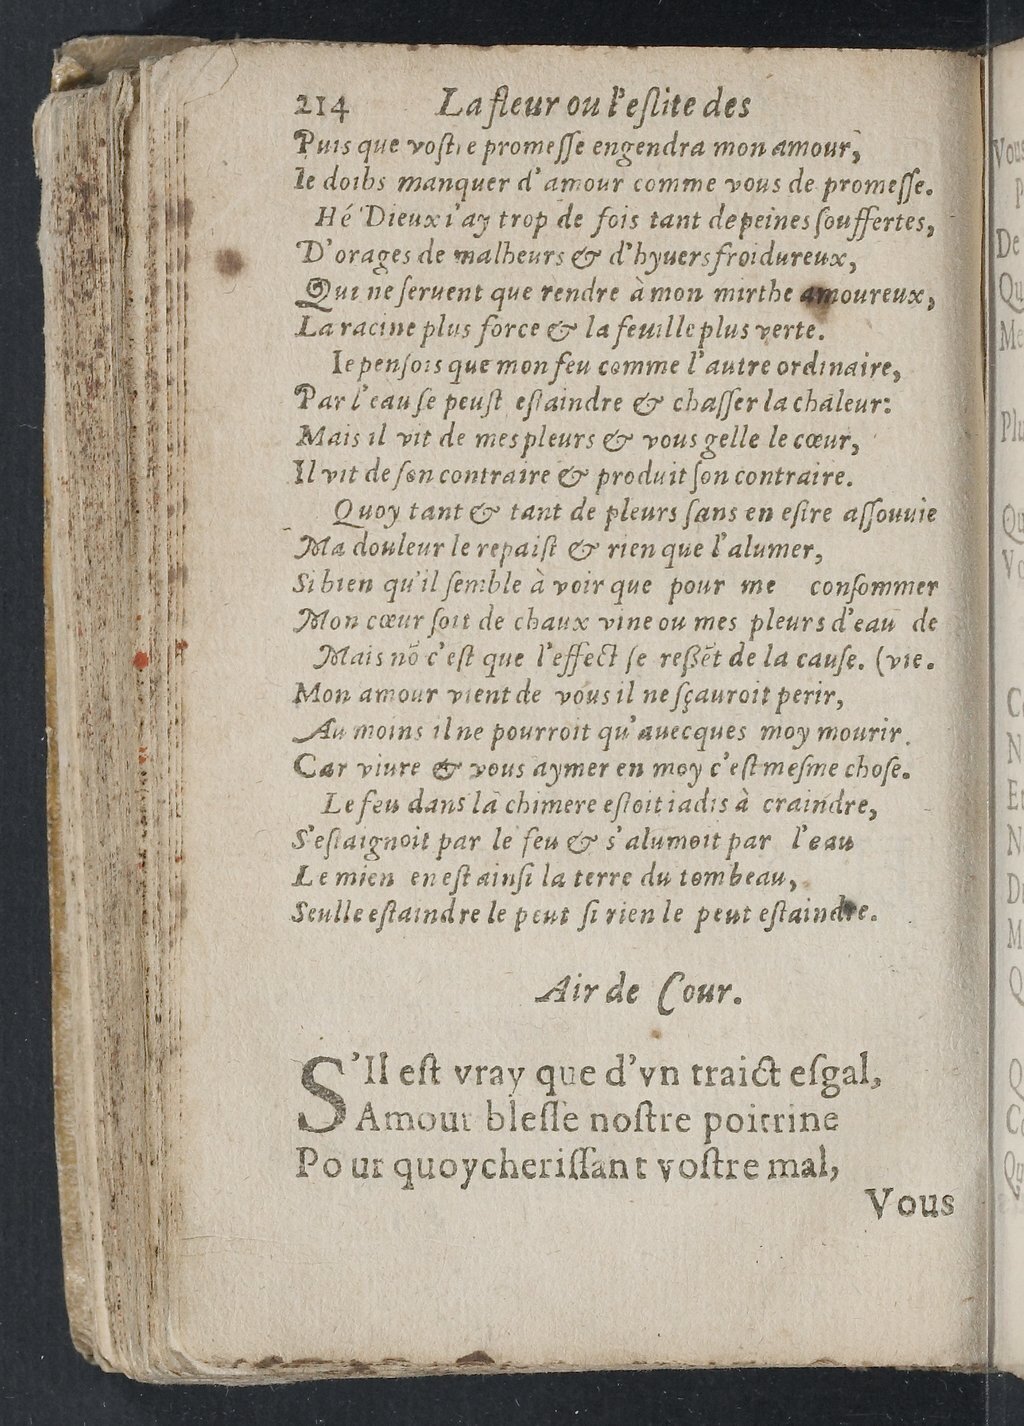 214 La fleur ou l'eslite des
Puis que vostre promesse engendra mon amour,
Ie doibs manquer d'amour comme vous de promesse.
Hé Dieux i'ay trop de fois tant de peines souffertes,
D'orages de malheurs & d'hyvers froidureux,
Qui ne seruent que rendre à mon mirthe amoureux,
La racine plus force & la feuille plus verte.
Ie pensois que mon feu comme l'autre ordinaire,
Par l'eau se peust estaindre & chasser la chaleur:
Mais il vit de mes pleurs & vous gelle le cœur,
Il vit de son contraire & produit son contraire.
Quoy tant & tant de pleurs sans en estre assouuie
Ma douleur le repaist & rien que l'alumer,
Si bien qu'il semble à voir que pour me consommer
Mon cœur soit de chaux vine ou mes pleurs d'eau de
Mais nō c'est que l'effect se ressēt de la cause. (vie.
Mon amour vient de vous il ne sçauroit perir,
Au moins il ne pourroit qu'auecques moy mourir.
Car viure & vous aymer en moy c'est mesme chose.
Le feu dans la chimere estoit iadis à craindre,
S'estaignoit par le feu & s'alumoit par l'eau
Le mien en est ainsi la terre du tombeau,
Seulle estaindre le peut si rien le peut estaindre.
Air de Cour.
S'Il est vray que d'vn traict esgal,
Amour blesse nostre poitrine
Pour quoy cherissant vostre mal,
Vous